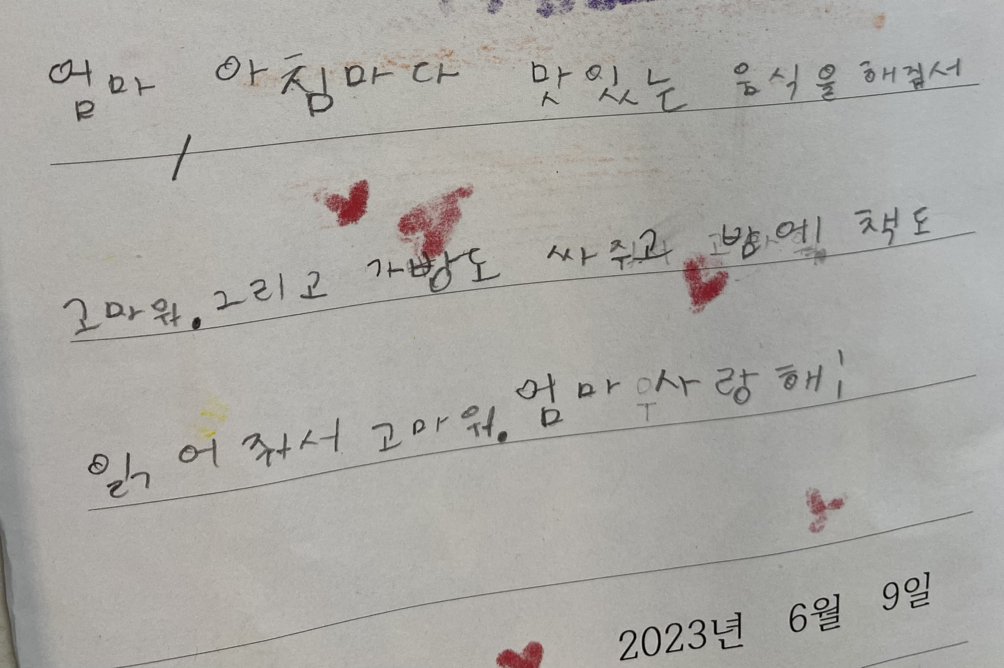 엄마 아침마다 맛있는 음식을 해줘서
고마워. 그리고 가방도 싸 주고 밤에 책도
읽어 줘서 고마워. 엄마 사랑해!
2023년 6월 9일